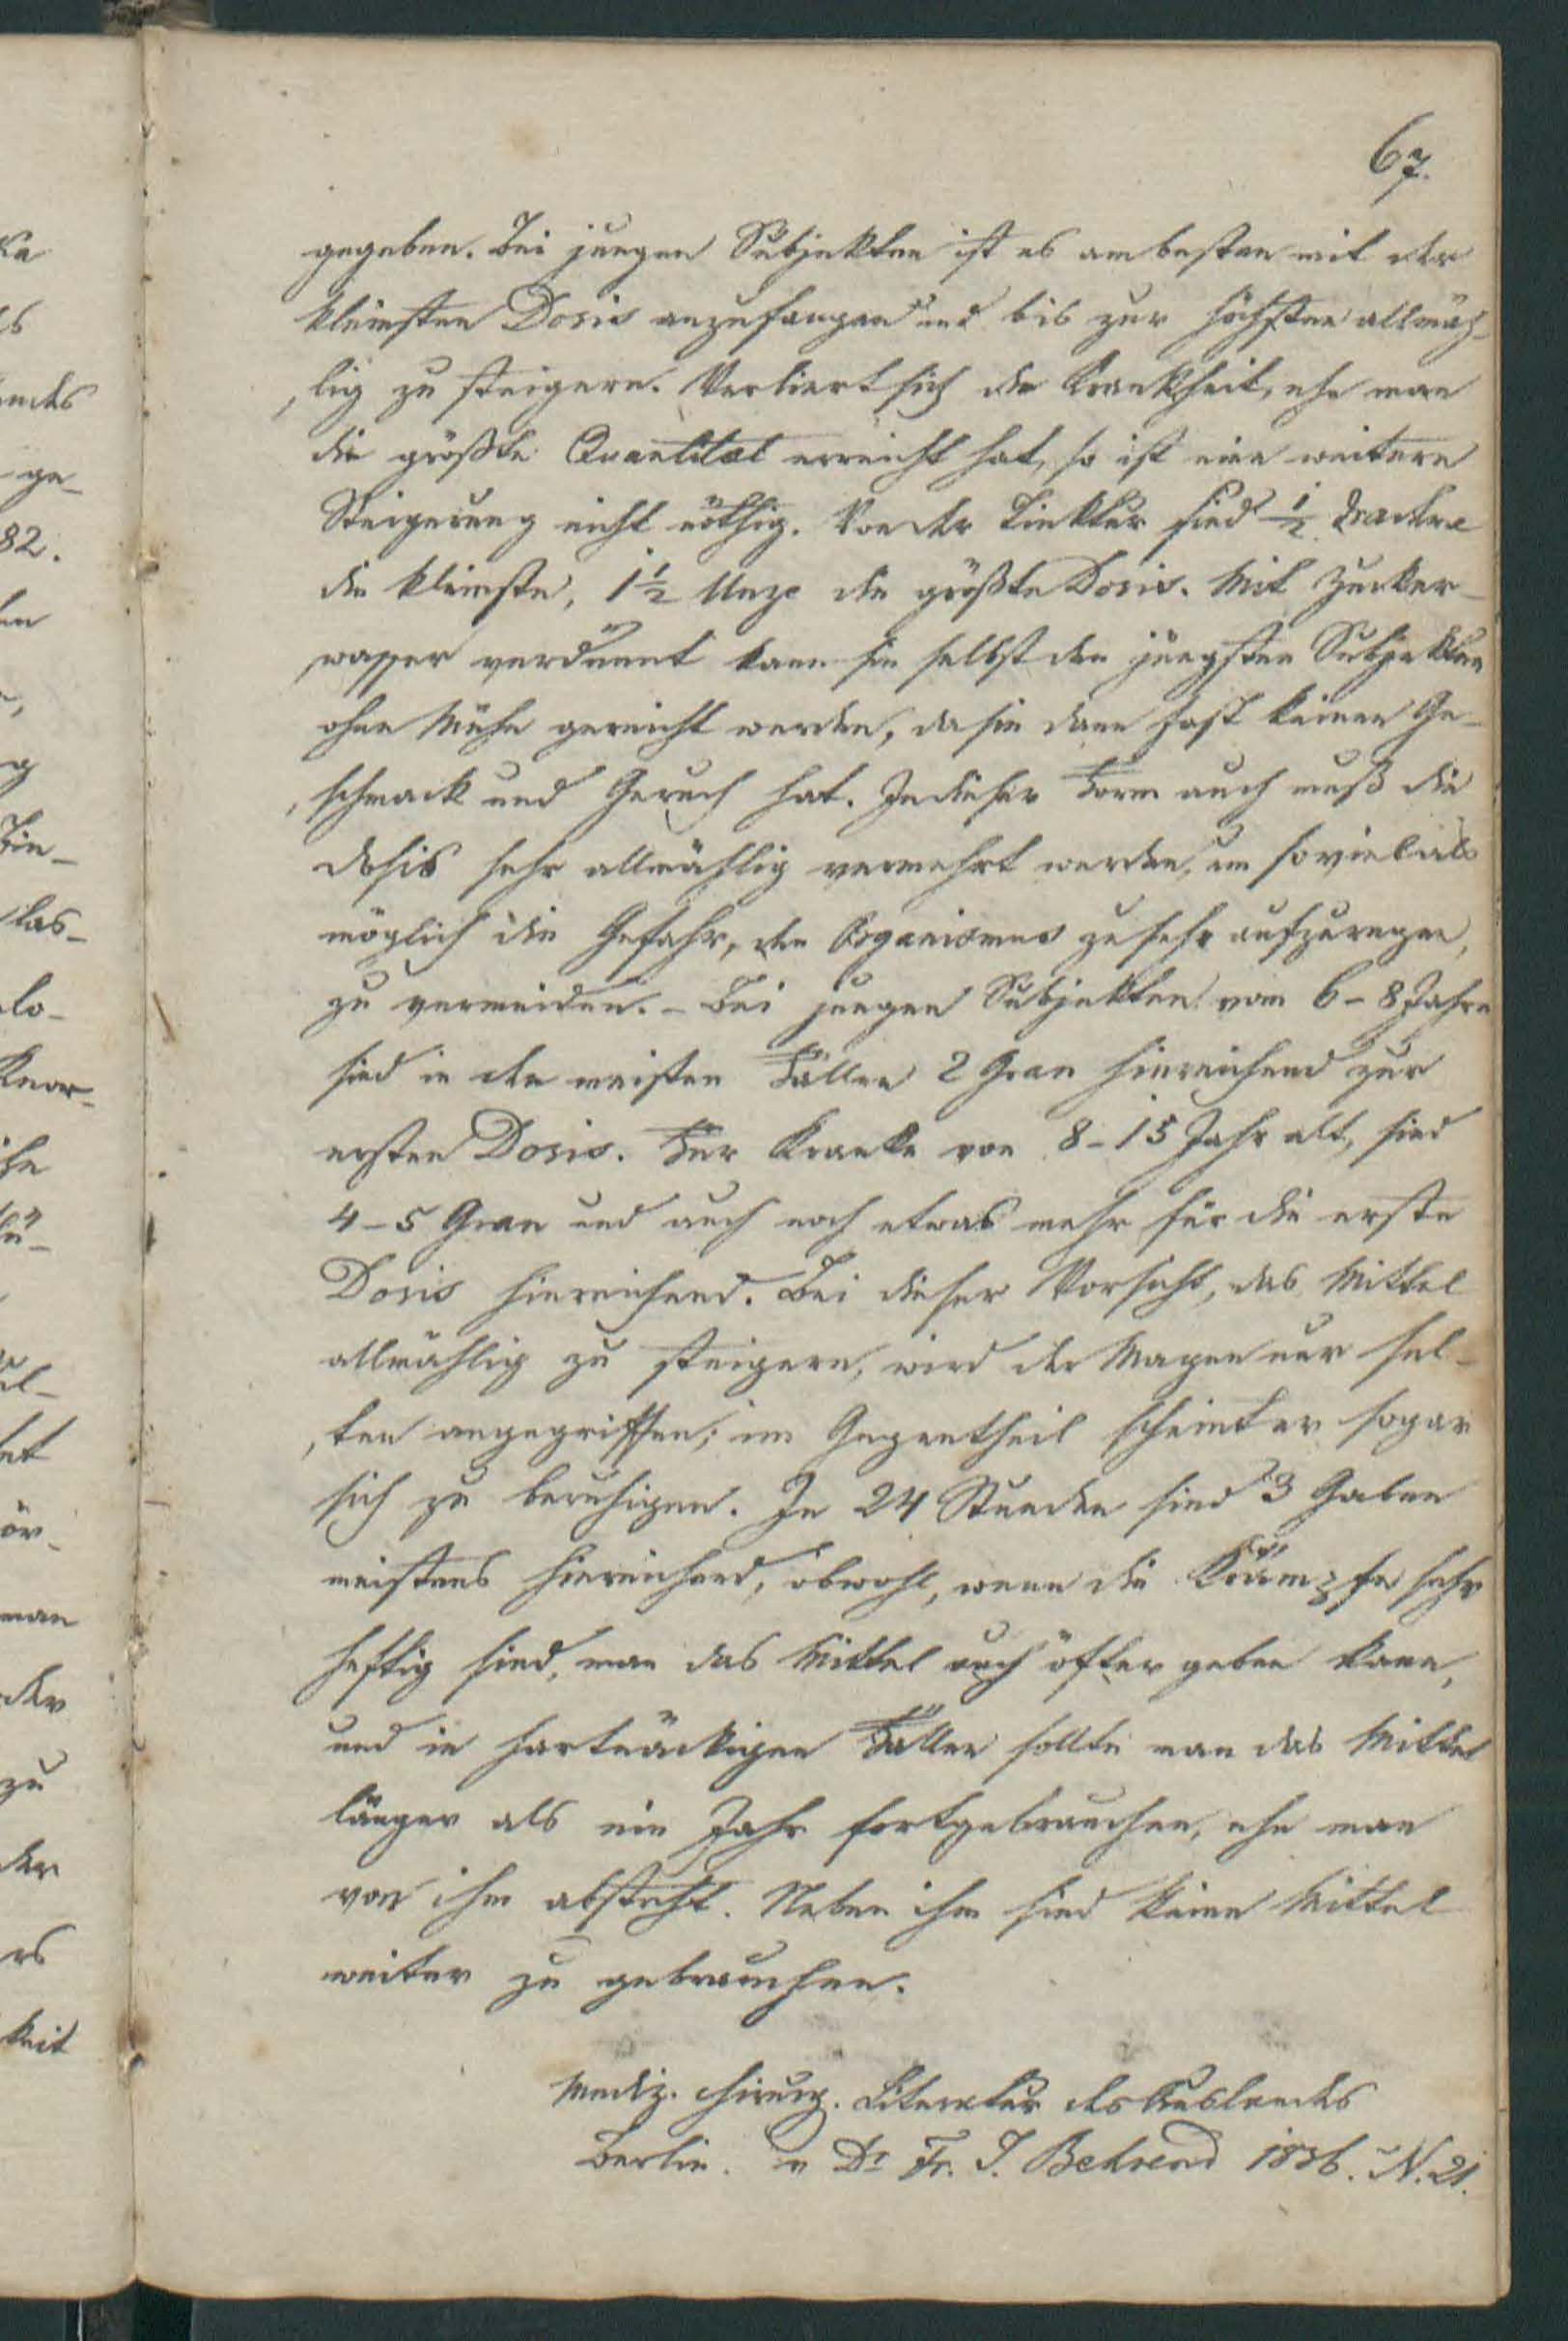 67.
gegeben. Bei jungen Subjekten ist es am besten mit der
kleinsten Dosis anzufangen und bis zur höchsten allmäh-
lig zu steigern. Verliert sich die Krankheit, ehe man
die größte Quantität erreicht hat, so ist eine weitere
Steigerung nicht nöthig. Von der Tinktur sind ½ Drachme
die kleinste, 1½ Unze die größte Dosis. Mit Zucker-
wasser verdünnt kann sie selbst den jüngsten Subjekten
ohne Mühe gereicht werden, da sie dann fast keinen Ge-
schmack und Geruch hat. In dieser Form auch muß die
dosis sehr allmählig vermehrt werden, um soviel als
möglich die Gefahr, den Organismus zu sehr aufzuregen,
zu vermeiden. - Bei jungen Subjekten vom 6-8 Jahre
sind in den meisten Fällen 2 Gran hinreichend zur
ersten Dosis. Für Kranke von 8-15 Jahr alt, sind
4-5 Gran und auch noch etwas mehr für die erste
Dosis hinreichend. Bei dieser Vorsicht, das Mittel
allmählig zu steigern, wird der Magen nur sel-
ten angegriffen; im Gegentheil scheint er sogar
sich zu beruhigen. In 24 Stunden sind 3 Gaben
meistens hinreichend, obwohl, wenn die Krämpfe sehr
heftig sind, man das Mittel auch öfter geben kann,
und in hartnäckigen Fällen sollte man das Mittel
länger als ein Jahr fortgebrauchen, ehe man
von ihm absteht. Neben ihm sind keine Mittel
weiter zu gebrauchen.
Mediz. chirurg. Literatur des Auslandes
Berlin. v Dr Fr. J. Behrend 1836. N. 21.
ka
ls
andes
ge-
82.
en
g
Tin-
las-
lo-
Knor-
he
lü-
el-
et
ör-
man
der
zu
der
rs
keit